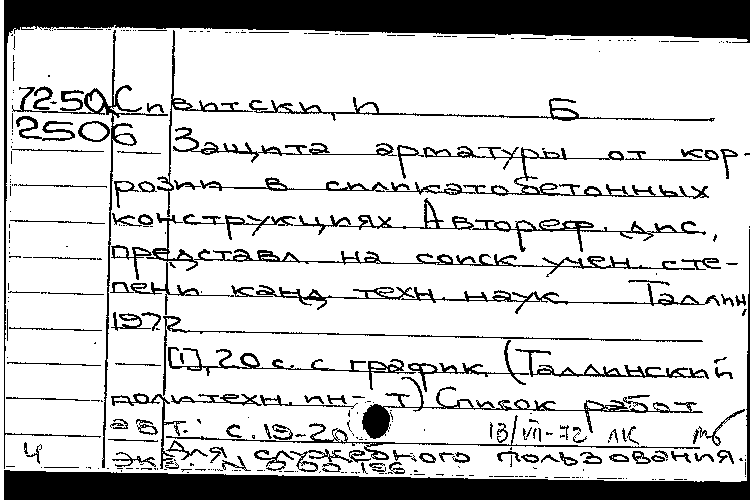 72-50 Спвитски, И Б
2506 Защита арматуры от кор-
розии в силикатобетонных
конструкциях. Автореф. дис.,
представл. на соиск учен. сте-
пени канд техн. наук Таллин,
1972.
[1], 20 с. с график. (Таллинский
политехн. ин-т) Список работ
авт.: с. 19-20
13/VII-72 ЛК
Для служебного пользования.
4 экз. N 000196.